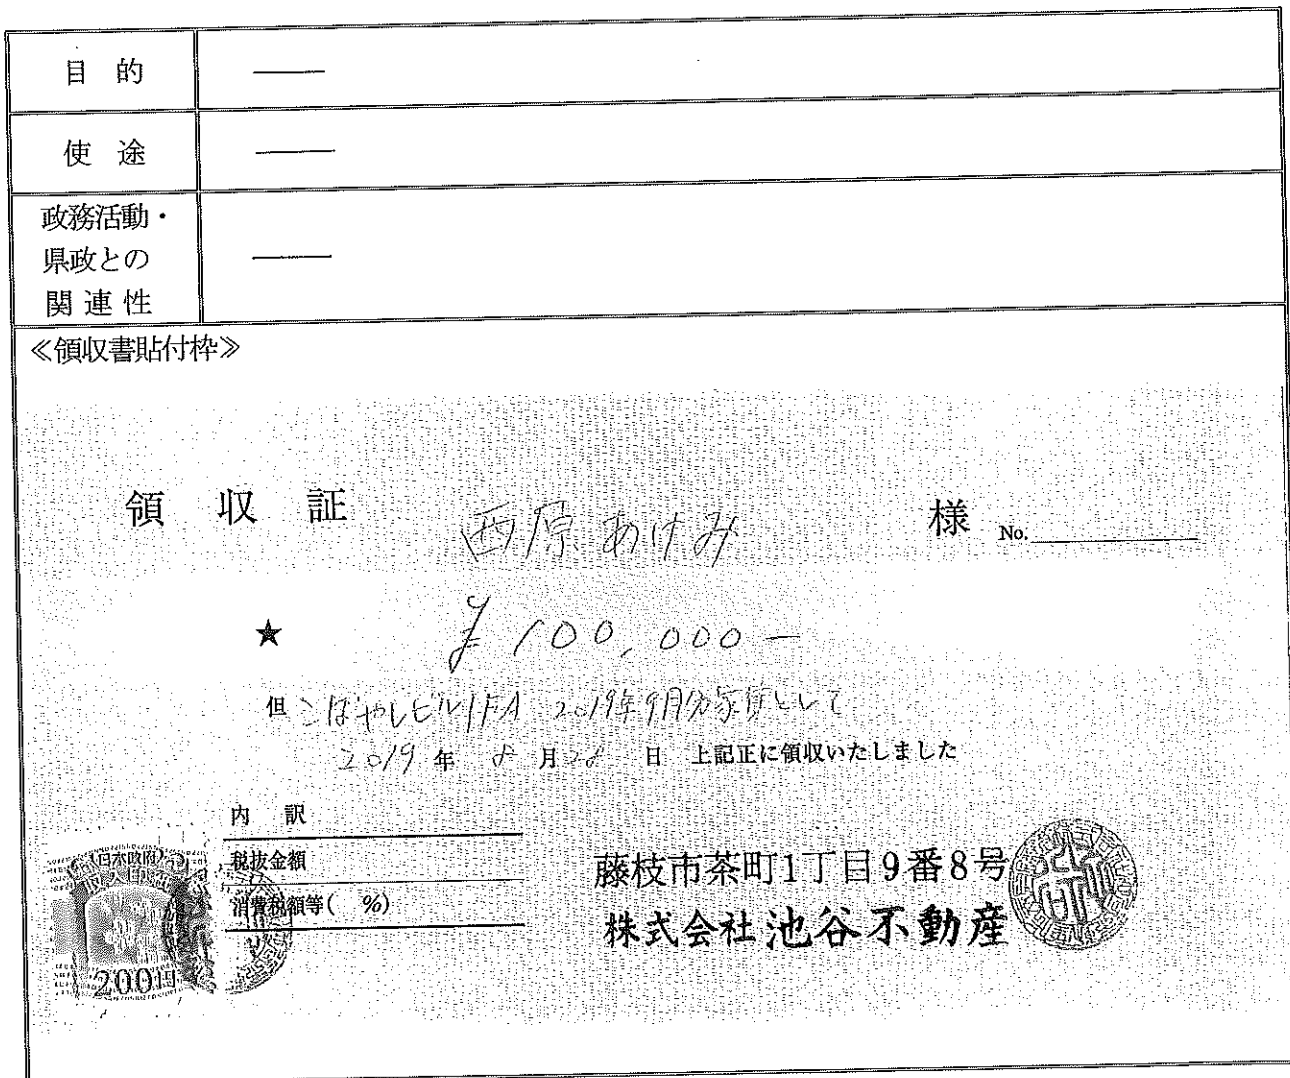 目的 ―
使途 ―
政務活動・
県政との ―
関連性
≪領収書貼付枠≫
領収証 西原あけみ 様 No.
★ ¥100,000―
但 こばやしビル1FA 2019年9月分家賃として
2019年 8月28日 上記正に領収いたしました
内訳
税抜金額
消費税額等( %)
日本政府
収入印紙
200円
藤枝市茶町1丁目9番8号
株式会社池谷不動産